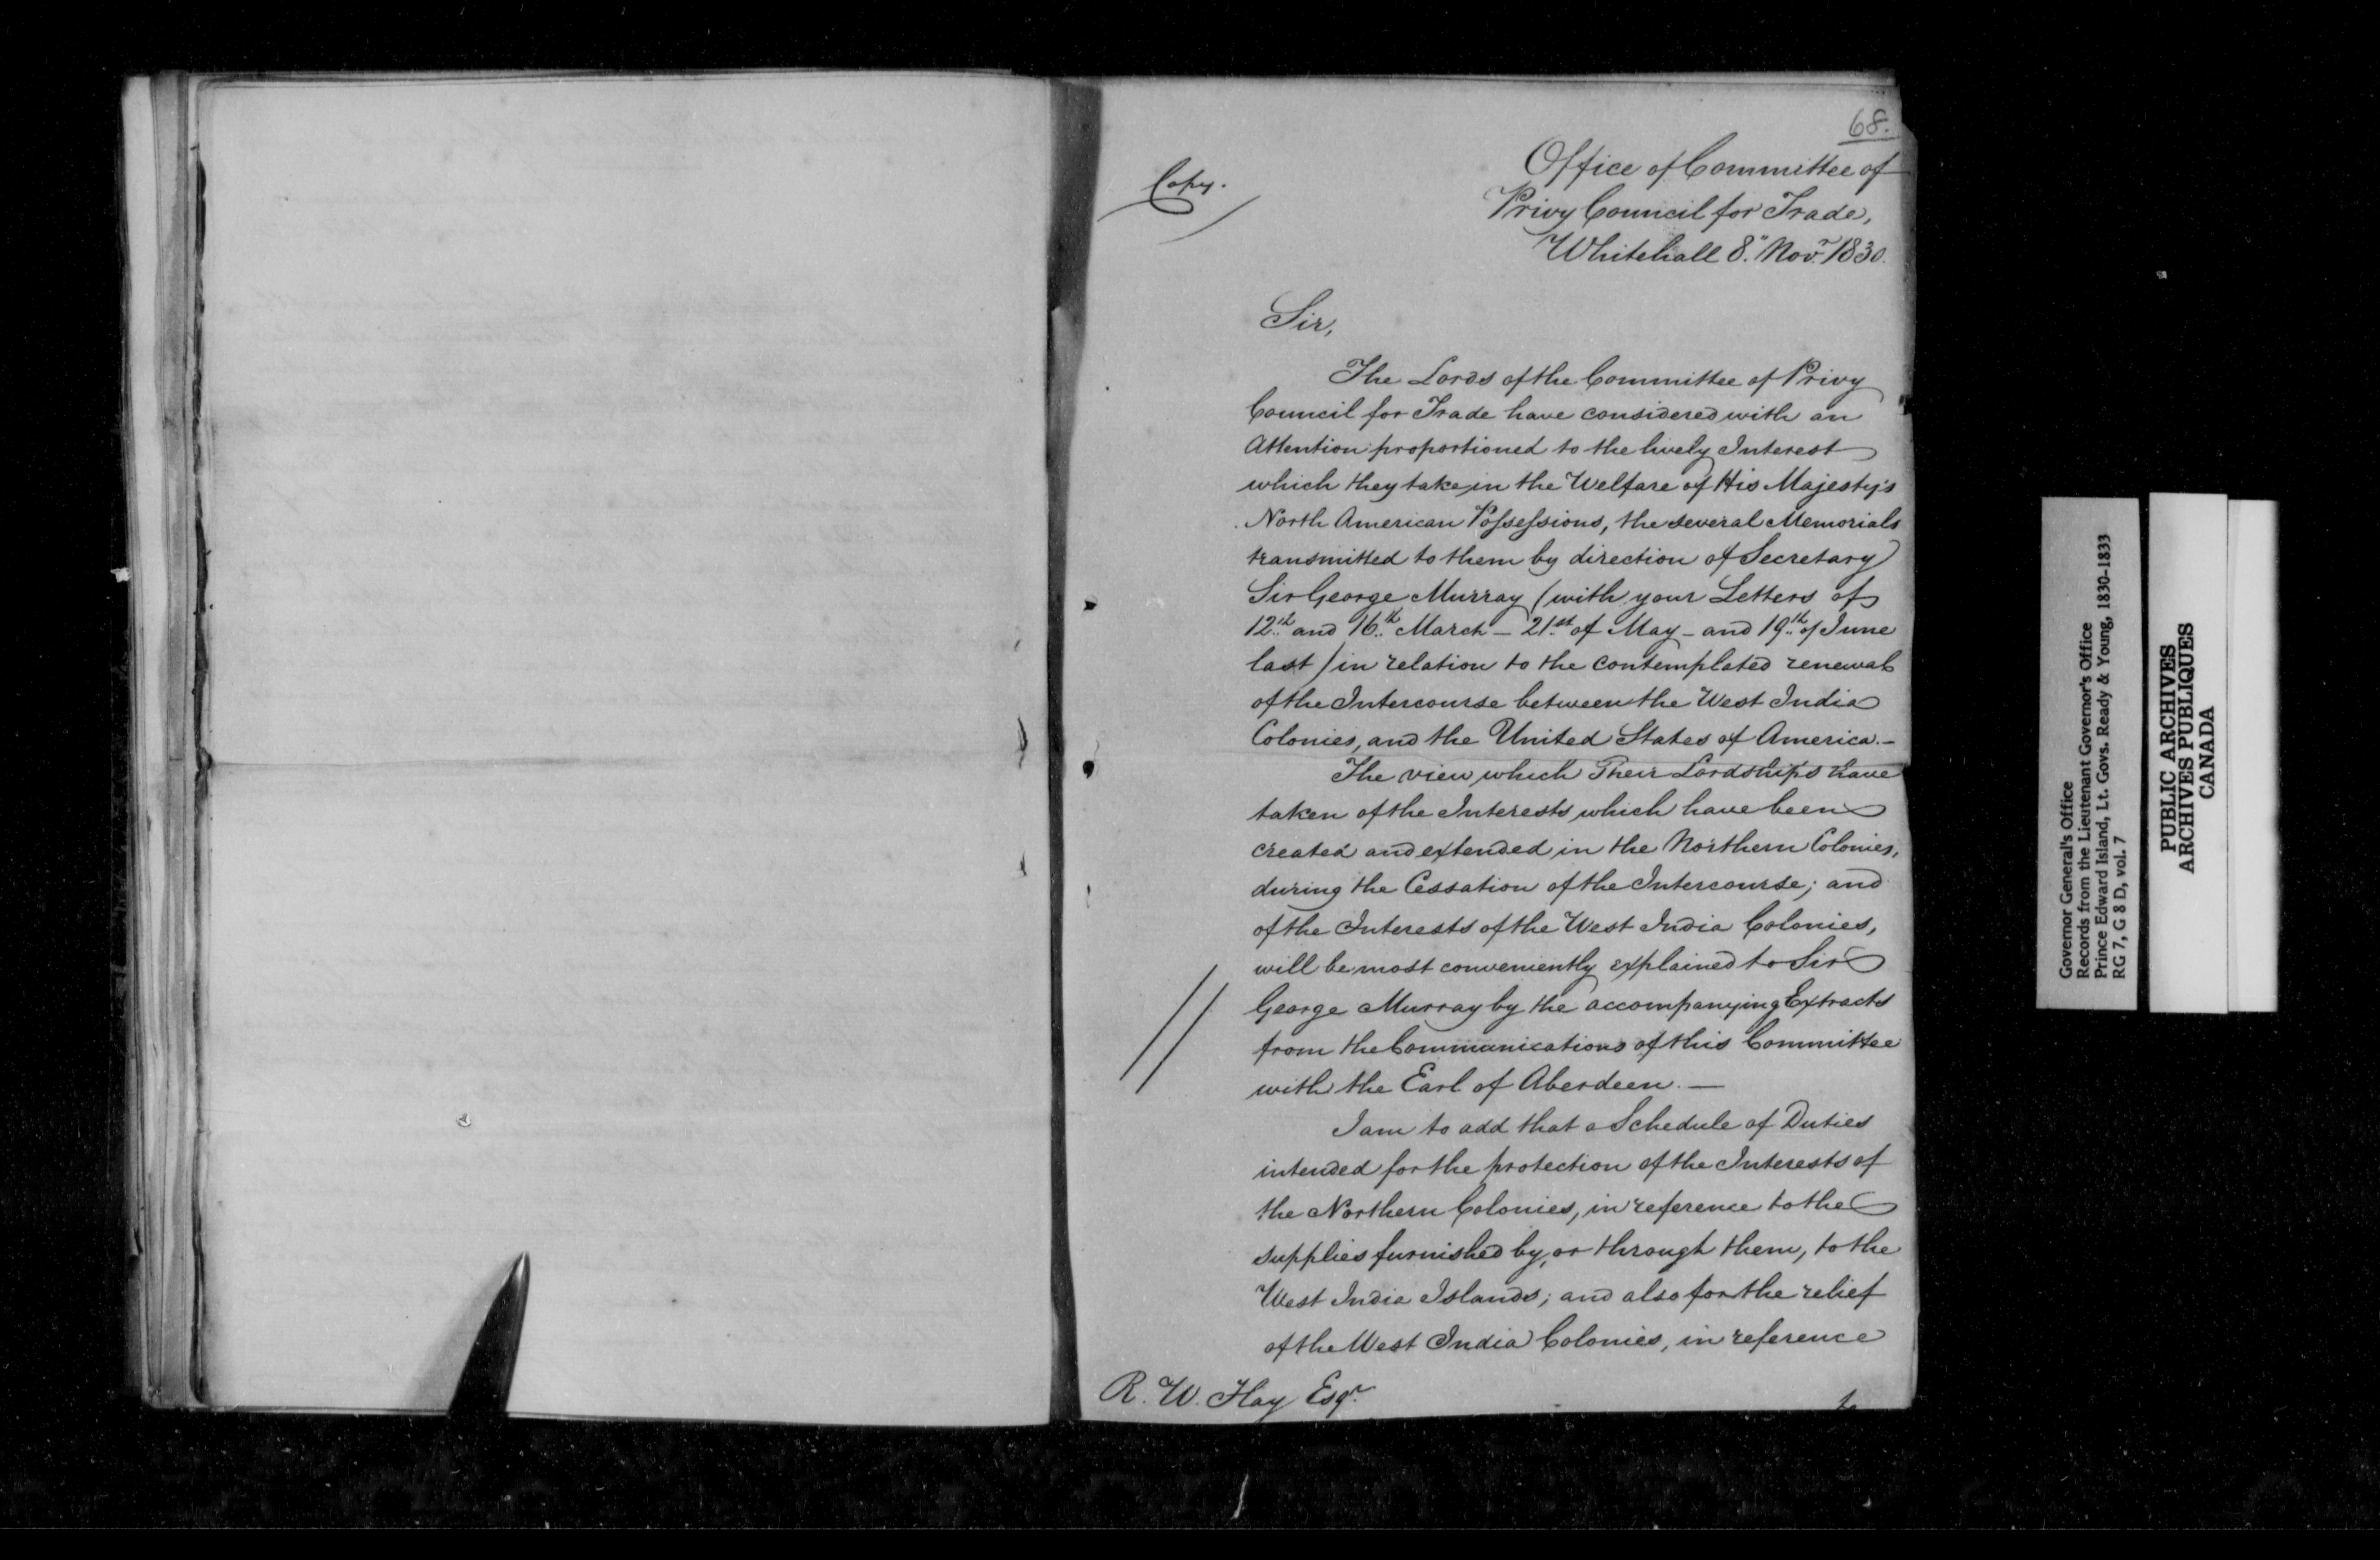 68.
Copy.
Office of Committee of
Privy Council for Trade,
Whitehall 8.th Novr. 1830.
Sir,
The Lords of the Committee of Privy
Council for Trade have considered with an
Attention proportioned to the lively Interest
which they take in the Welfare of His Majesty's
North American Possessions, the several Memorials
transmitted to them by direction of Secretary
Sir George Murray (with your Letters of
12th. and 16th. March – 21st. of May – and 19th. of June
last) in relation to the contemplated renewal
of the Intercourse between the West India
Colonies, and the United States of America.–
The view which Their Lordships have
taken of the Interests which have been
created and extended in the Northern Colonies,
during the Cessation of the Intercourse; and
of the Interests of the West India Colonies,
will be most conveniently explained to Sir
George Murray by the accompanying Extracts
from the Communications of this Committee
with the Earl of Aberdeen.—
I am to add that a Schedule of Duties
intended for the protection of the Interests of
the Northern Colonies, in reference to the
supplies furnished by, or through them, to the
West India Islands; and also for the relief
of the West India Colonies, in reference
R. W. Hay Esqr.
to
Governor General's Office
Records from the Lieutenant Governor's Office
Prince Edward Island, Lt. Govs. Ready & Young, 1830-1833
RG 7, G 8 D, vol. 7
PUBLIC ARCHIVES
ARCHIVES PUBLIQUES
CANADA